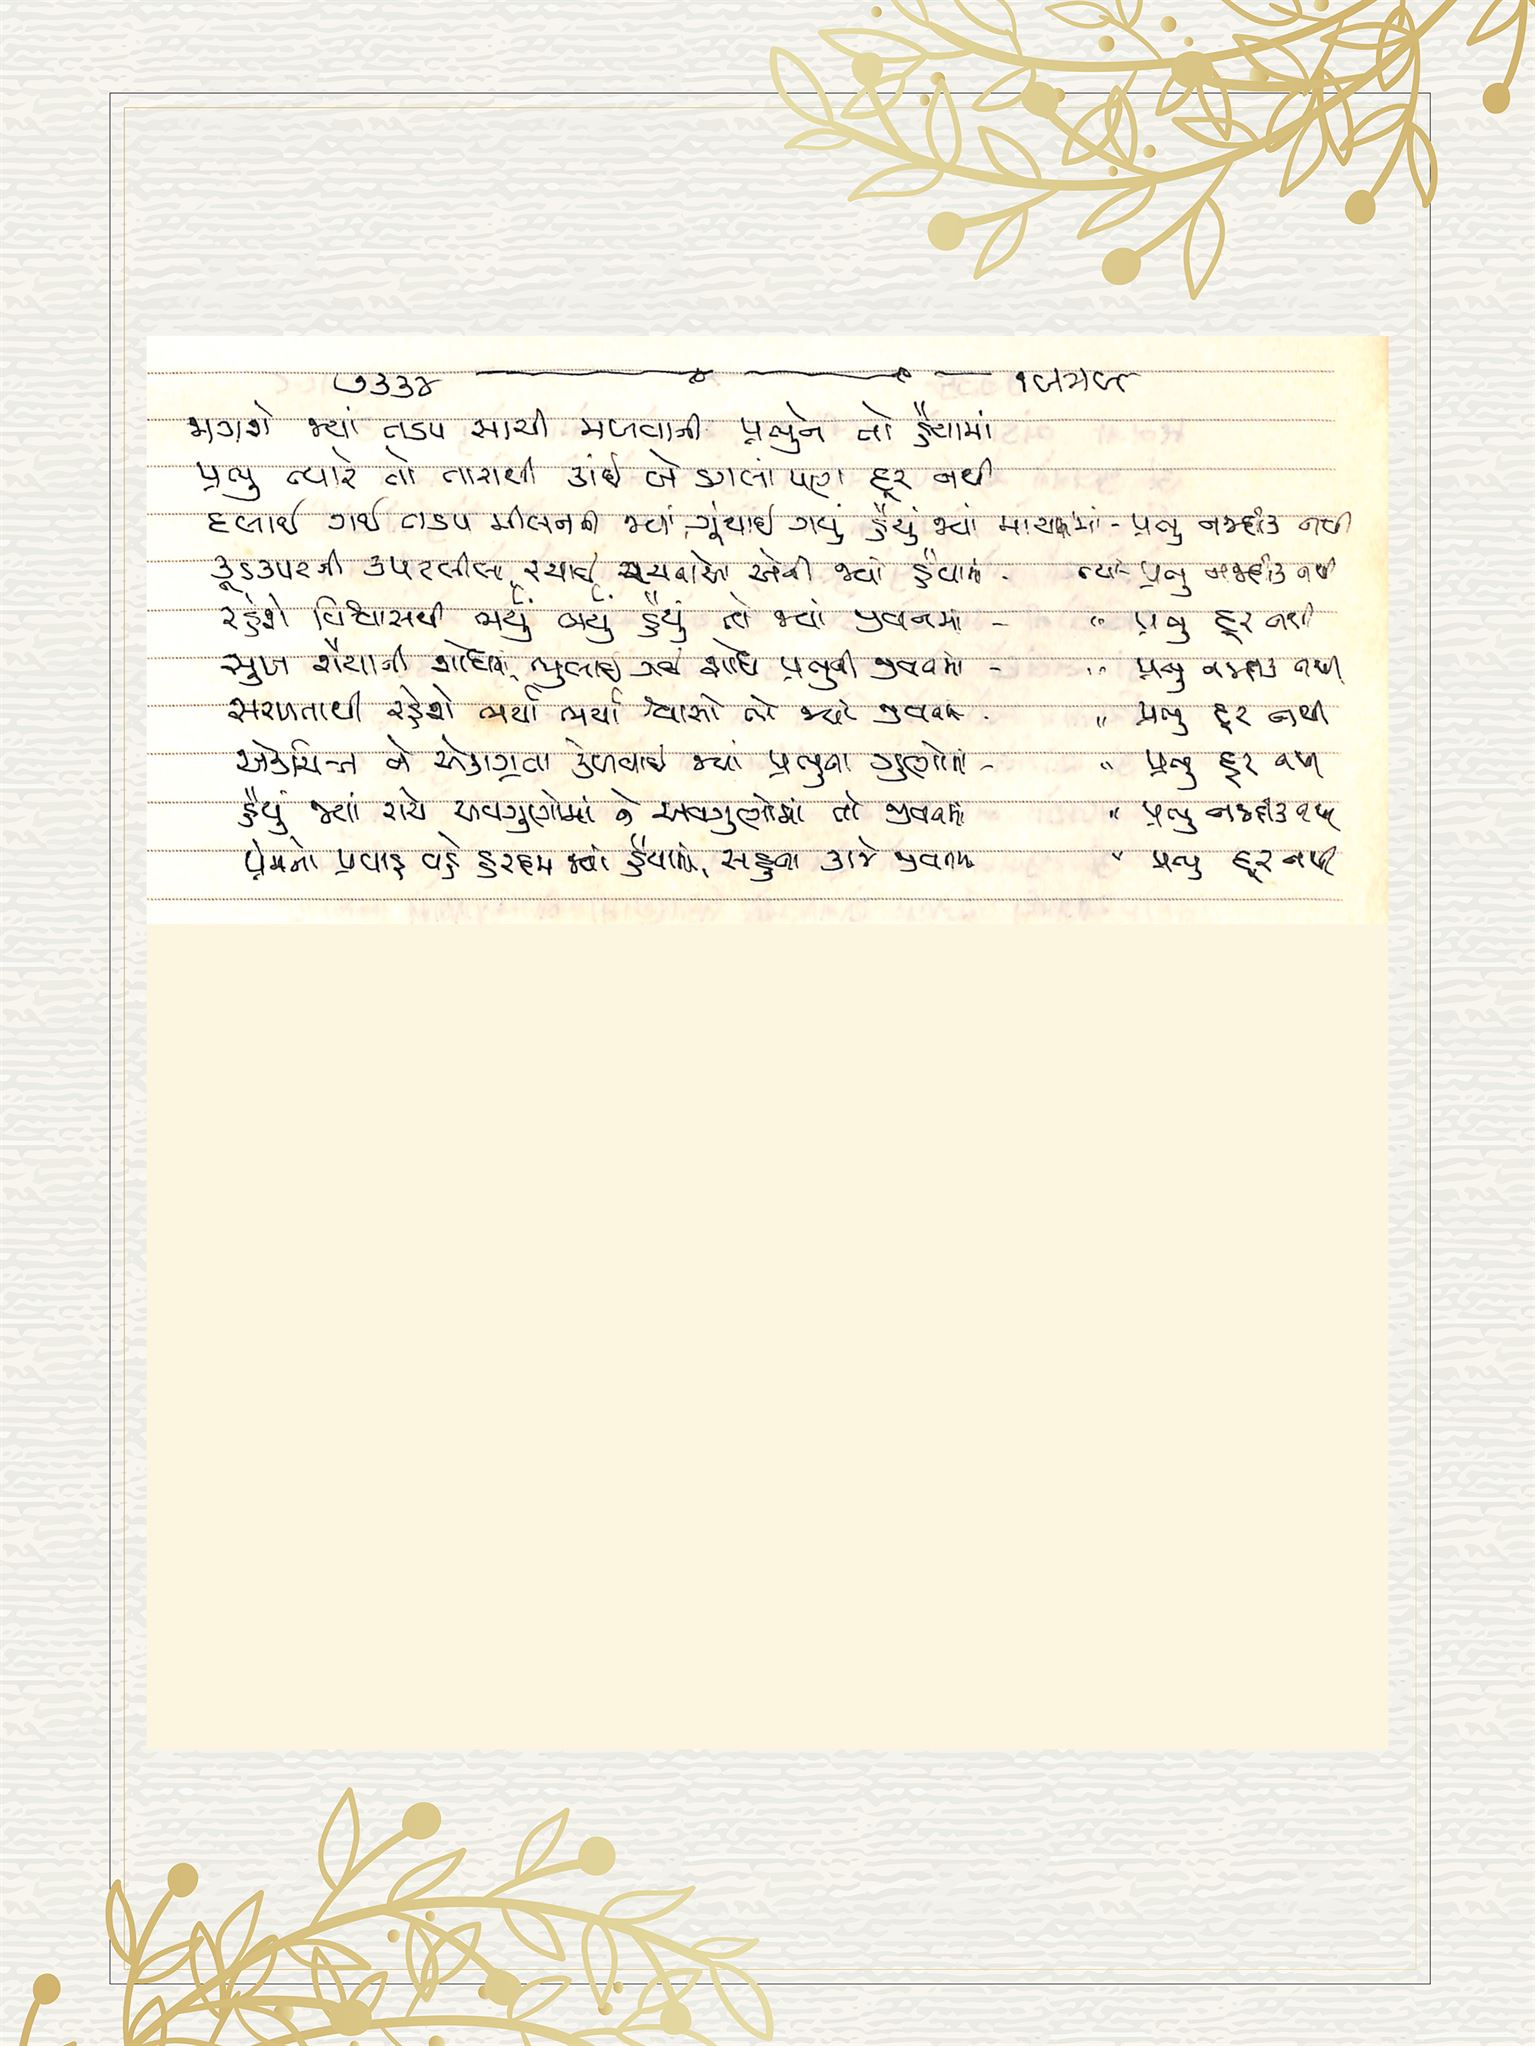 ૭૩૩૪
જાગશે જ્યાં તડપ સાચી મળવાની પ્રભુને તો હૈયામાં
પ્રભુ ત્યારે તો તારાથી કાંઈ બે ડગલાં પણ દૂર નથી
દબાઈ ગઈ તડપ મીલનની જ્યાં, ગૂંથાઈ ગયું હૈયું જ્યાં માયામાં - પ્રભુ નજદીક નથી
ઉપરની ઉપરછીલ્લી એવી જ્યાં હૈયામાં - ત્યાં પ્રભુ નજદીક નથી
રહેશે વિશ્વાસથી ભર્યું ભર્યું હૈયું તો જ્યાં જીવનમાં - " પ્રભુ દૂર નથી
સુખ શૈયાની શોધમાં, ભુલાઈ ગઈ શોધ પ્રભુની જીવનમાં - " પ્રભુ નજદીક નથી
સરળતાથી રહેશે ભર્યા ભર્યા શ્વાસો તો જ્યાં જીવનમાં - " પ્રભુ દૂર નથી
એકચિત્ત ને એકાગ્રતા કેળવાઈ જ્યાં પ્રભુના ગુણોમાં - " પ્રભુ દૂર નથી
હૈયું જ્યાં રાચે અવગુણોમાં ને અવગુણોમાં તો જીવનમાં " પ્રભુ નજદીક નથી
પ્રેમનો પ્રવાહ વહે હરદમ જ્યાં હૈયામાં, સહુના કાજે જીવનમાં " પ્રભુ દૂર નથી